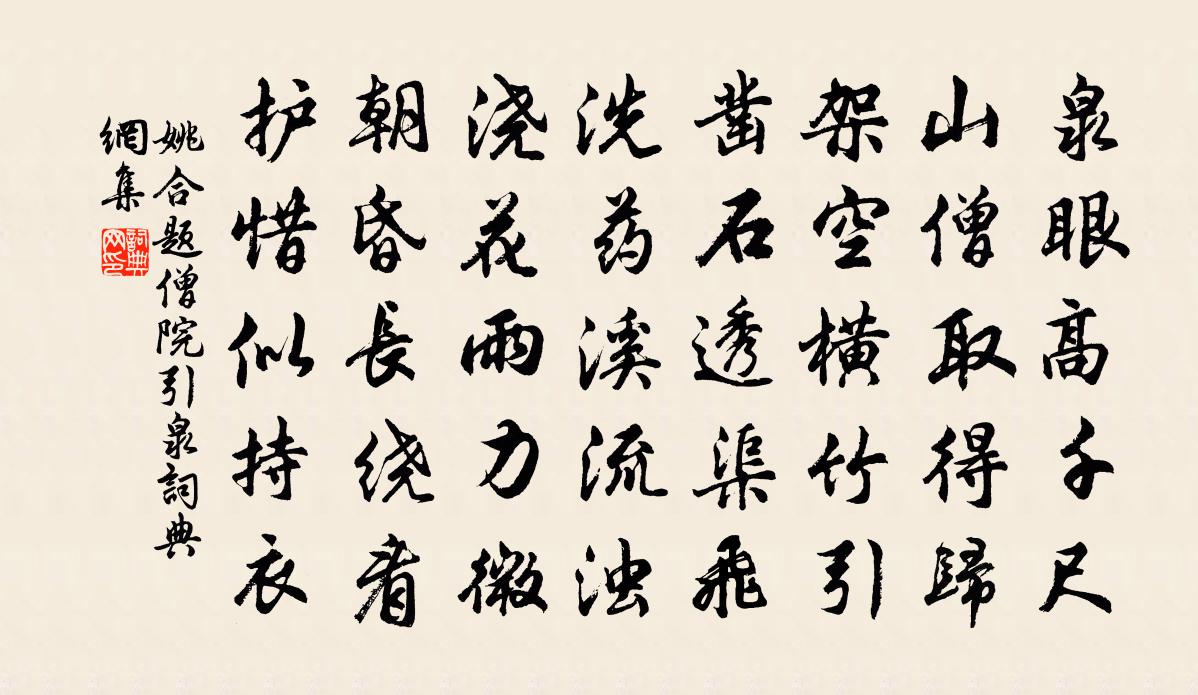 泉眼高千尺
山僧取得歸
架空橫竹引
凿石透渠飛
洗药溪流浊
浇花雨力微
朝昏長绕看
护惜似持衣
姚合題僧院引泉詞典
網集
詞典
网印